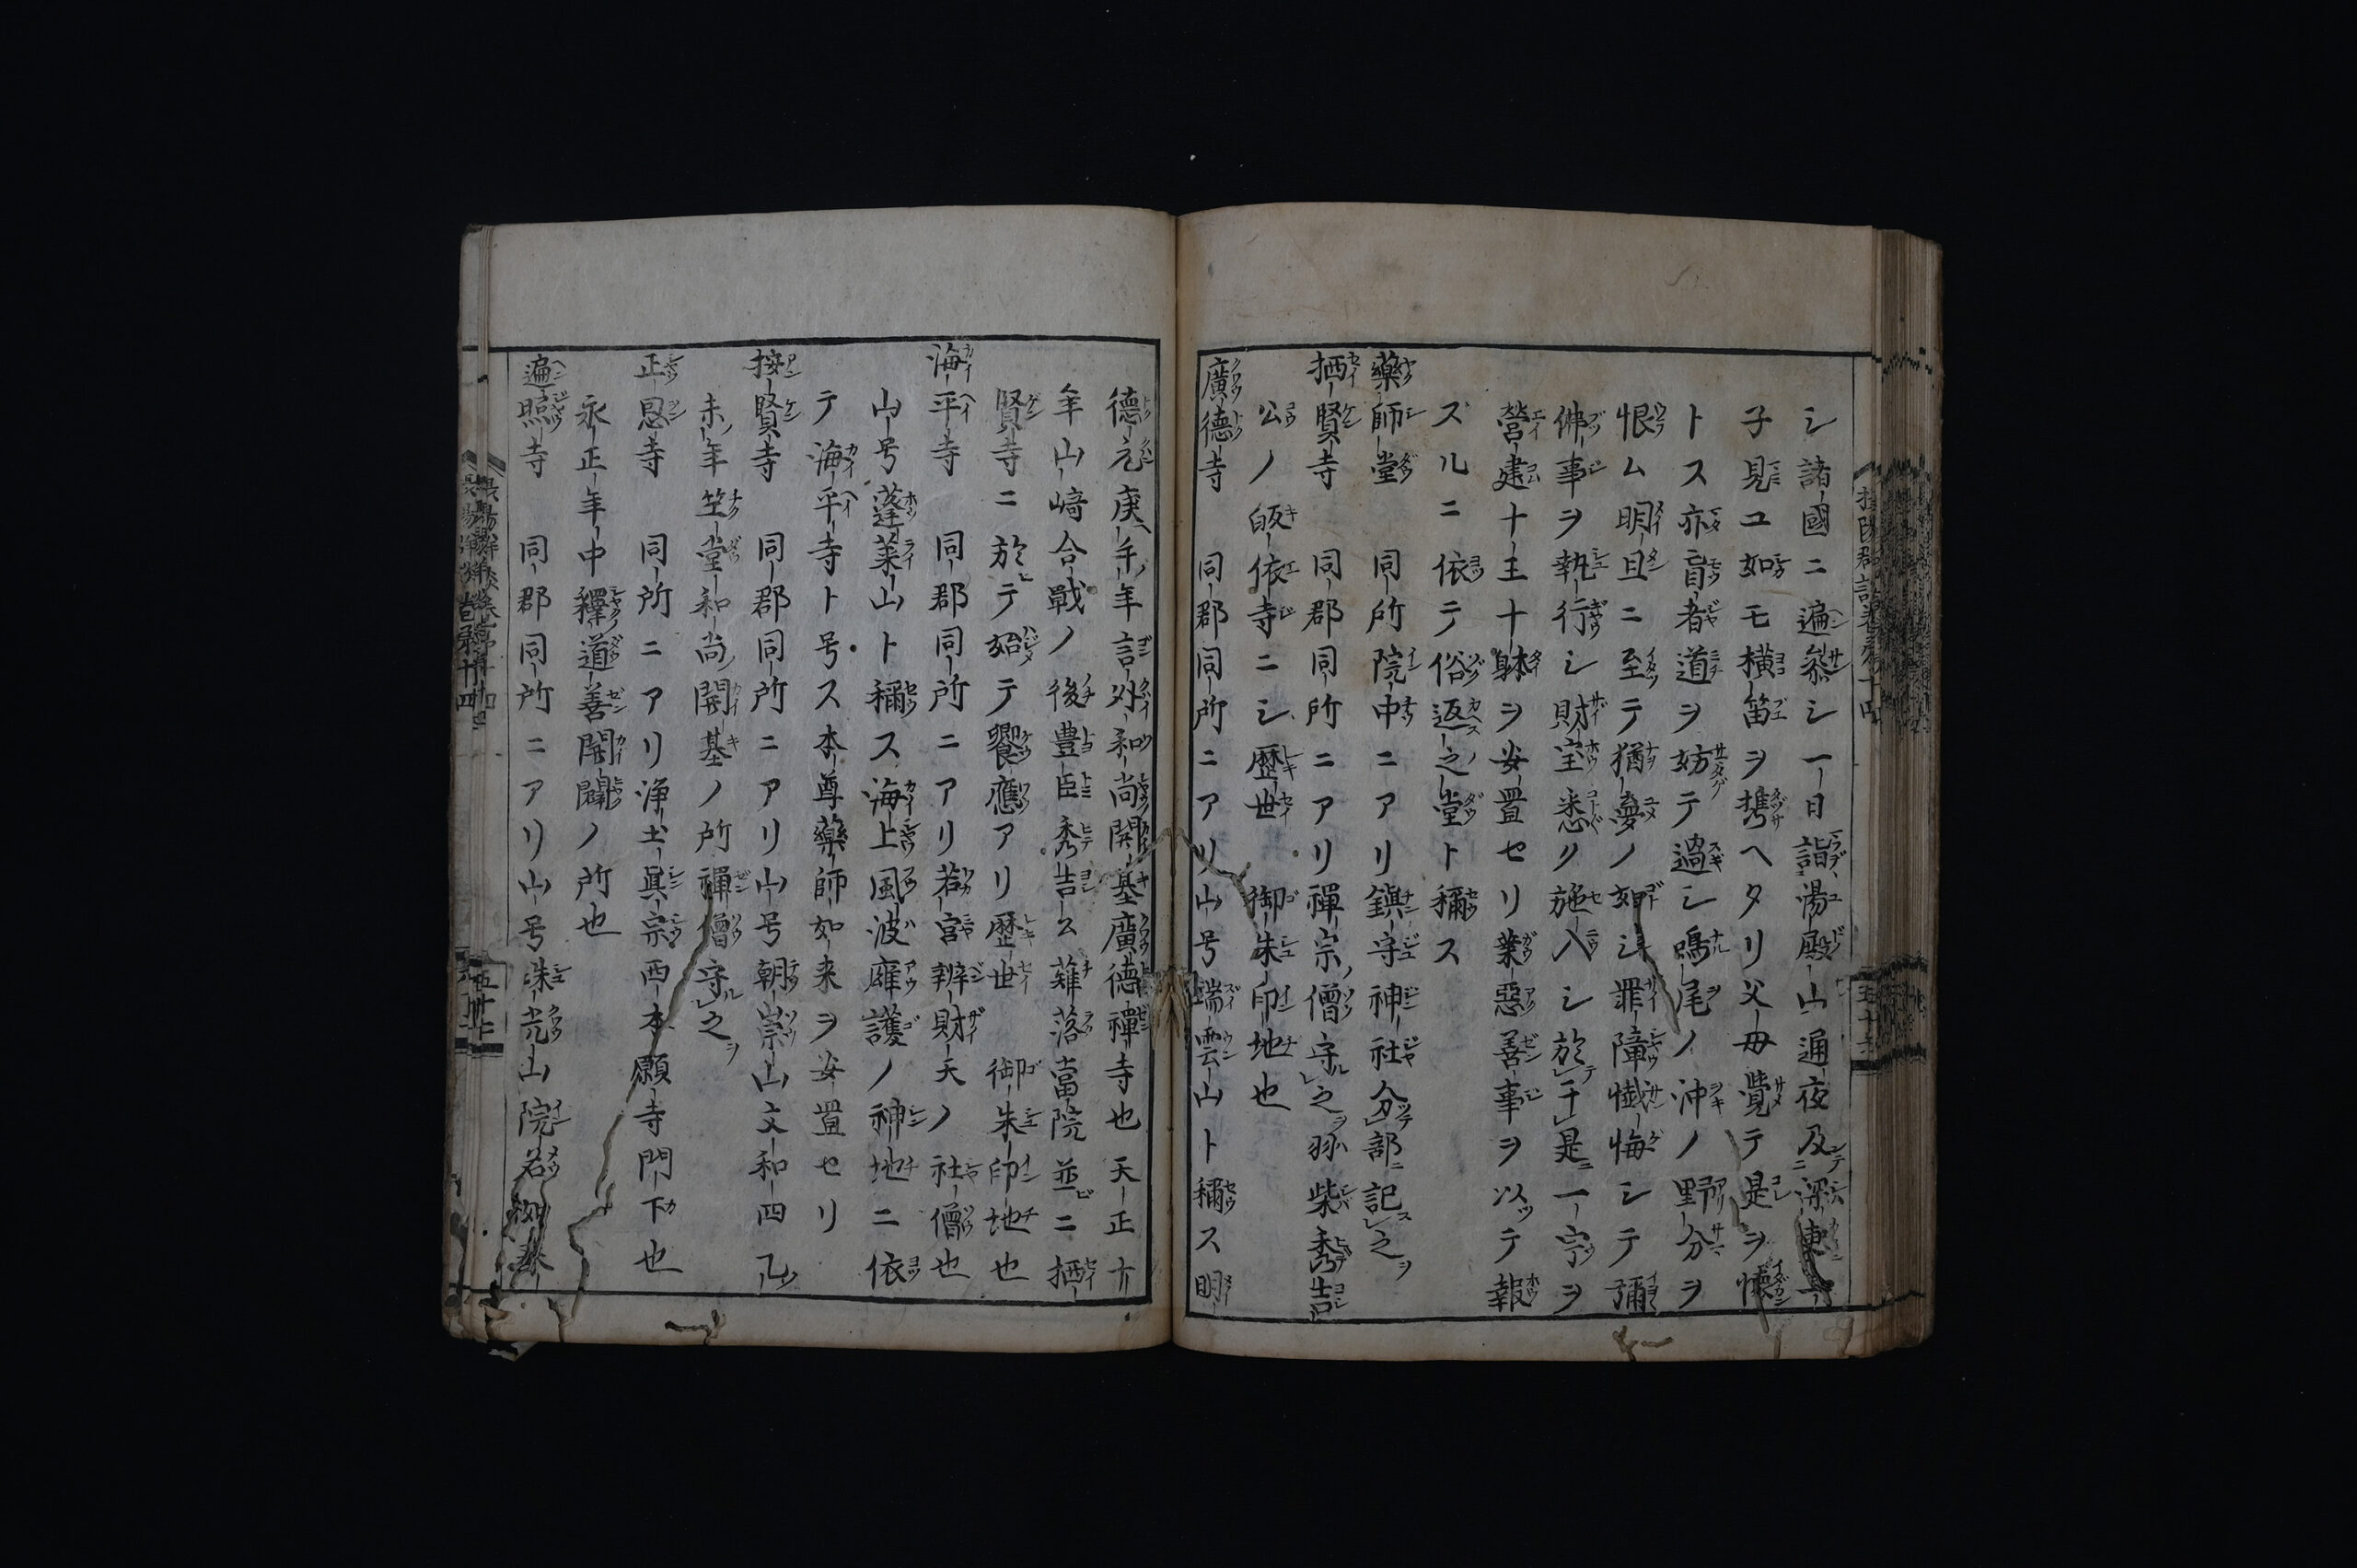 シ諸國ニ遍參シ一日詣湯殿山通夜及深更
子見ユ如モ橫笛ヲ携ヘタリ父母覺テ是ヲ懐
トス亦盲者道ヲ妨テ過シ鳴尾ノ沖ノ野分ヲ
恨ム明旦ニ至テ猶夢ノ如シ罪障懴悔シテ彌
佛事ヲ執行シ財宝悉ク施入シ於于是一宇ヲ
營建十王十躰ヲ安置セリ業惡善事ヲ以テ報
ズルニ依テ俗返之堂ト稱ス
藥師堂 同所院中ニアリ鎮守神社分部記之
栖賢寺 同郡同所ニアリ禪宗僧守之羽柴秀吉
公ノ皈依寺ニシ歴世 御朱印地也
廣德寺 同郡同所ニアリ山号瑞雲山ト稱ス明
德元庚午年言外和尚開基廣德禪寺也天正十
年山崎合戰ノ後豊臣秀吉公薙落當院並ニ栖
賢寺ニ於テ始テ饗應アリ歴世 御朱印地也
海平寺 同郡同所ニアリ若宮辨財天ノ社僧也
山号蓬莱山ト稱ス海上風波雍護ノ神地ニ依
テ海平寺ト号ス本尊藥師如来ヲ安置セリ
按賢寺 同郡同所ニアリ山号朝崇山文和四乙
未年竺堂和尚開基ノ所禪僧守之
正恩寺 同所ニアリ淨土眞宗西本願寺門下也
永正年中釋道善開闢ノ所也
遍照寺 同郡同所ニアリ山号珠光山院名
攝陽郡談卷第十四